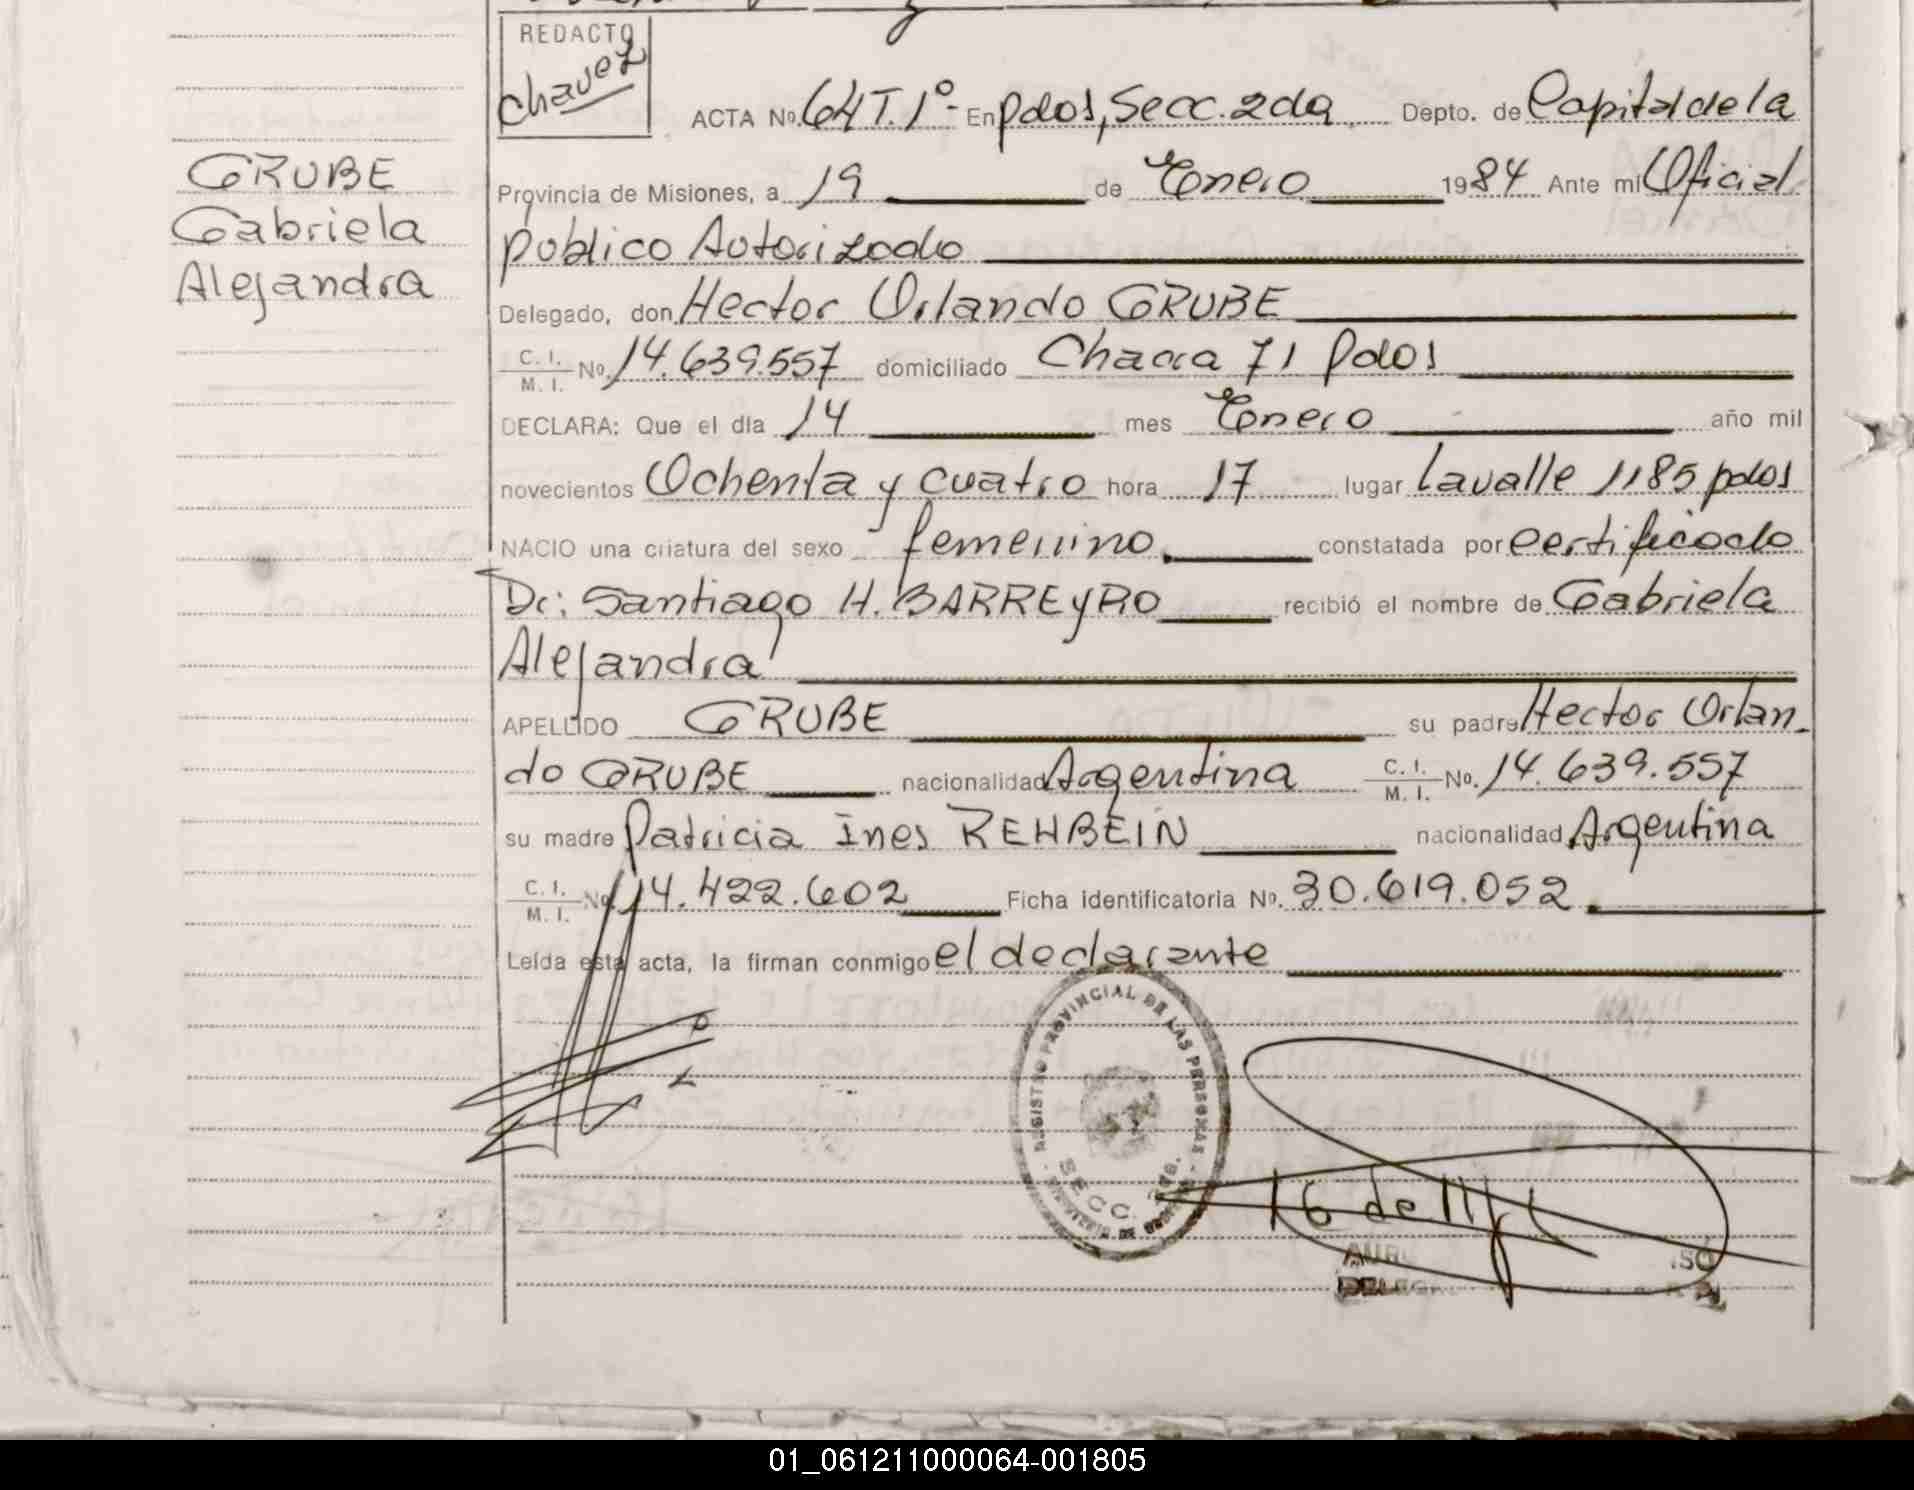 REDACTO
Chavez
ACTA Nº. 64 T. 1º- En pdas, Secc. 2da Depto. de Capital de la
GRUBE
Gabriela
Alejandra
Provincia de Misiones, a 19 de Enero 1984 Ante mi Oficial
publico Autorizado
Delegado, don Hector Orlando GRUBE
C. I. / M. I. No. 14.639.557 domiciliado Chacra 71 Pdas
DECLARA: Que el día 14 mes Enero año mil
novecientos Ochenta y cuatro hora 17 lugar Lavalle 1185 pdas
NACIO una criatura del sexo femenino. constatada por certificado
Dr: Santiago H. BARREYRO recibió el nombre de Gabriela
Alejandra
APELLIDO GRUBE su padre Hector Orlan-
do GRUBE nacionalidad Argentina C. I. / M. I. No. 14.639.557
su madre Patricia Ines REHBEIN nacionalidad Argentina
C. I. / M. I. No. 14.422.602 Ficha identificatoria Nº. 30.619.052.
Leída esta acta, la firman conmigo el declarante
REGISTRO PROVINCIAL DE LAS PERSONAS
SECC.
01_061211000064-001805